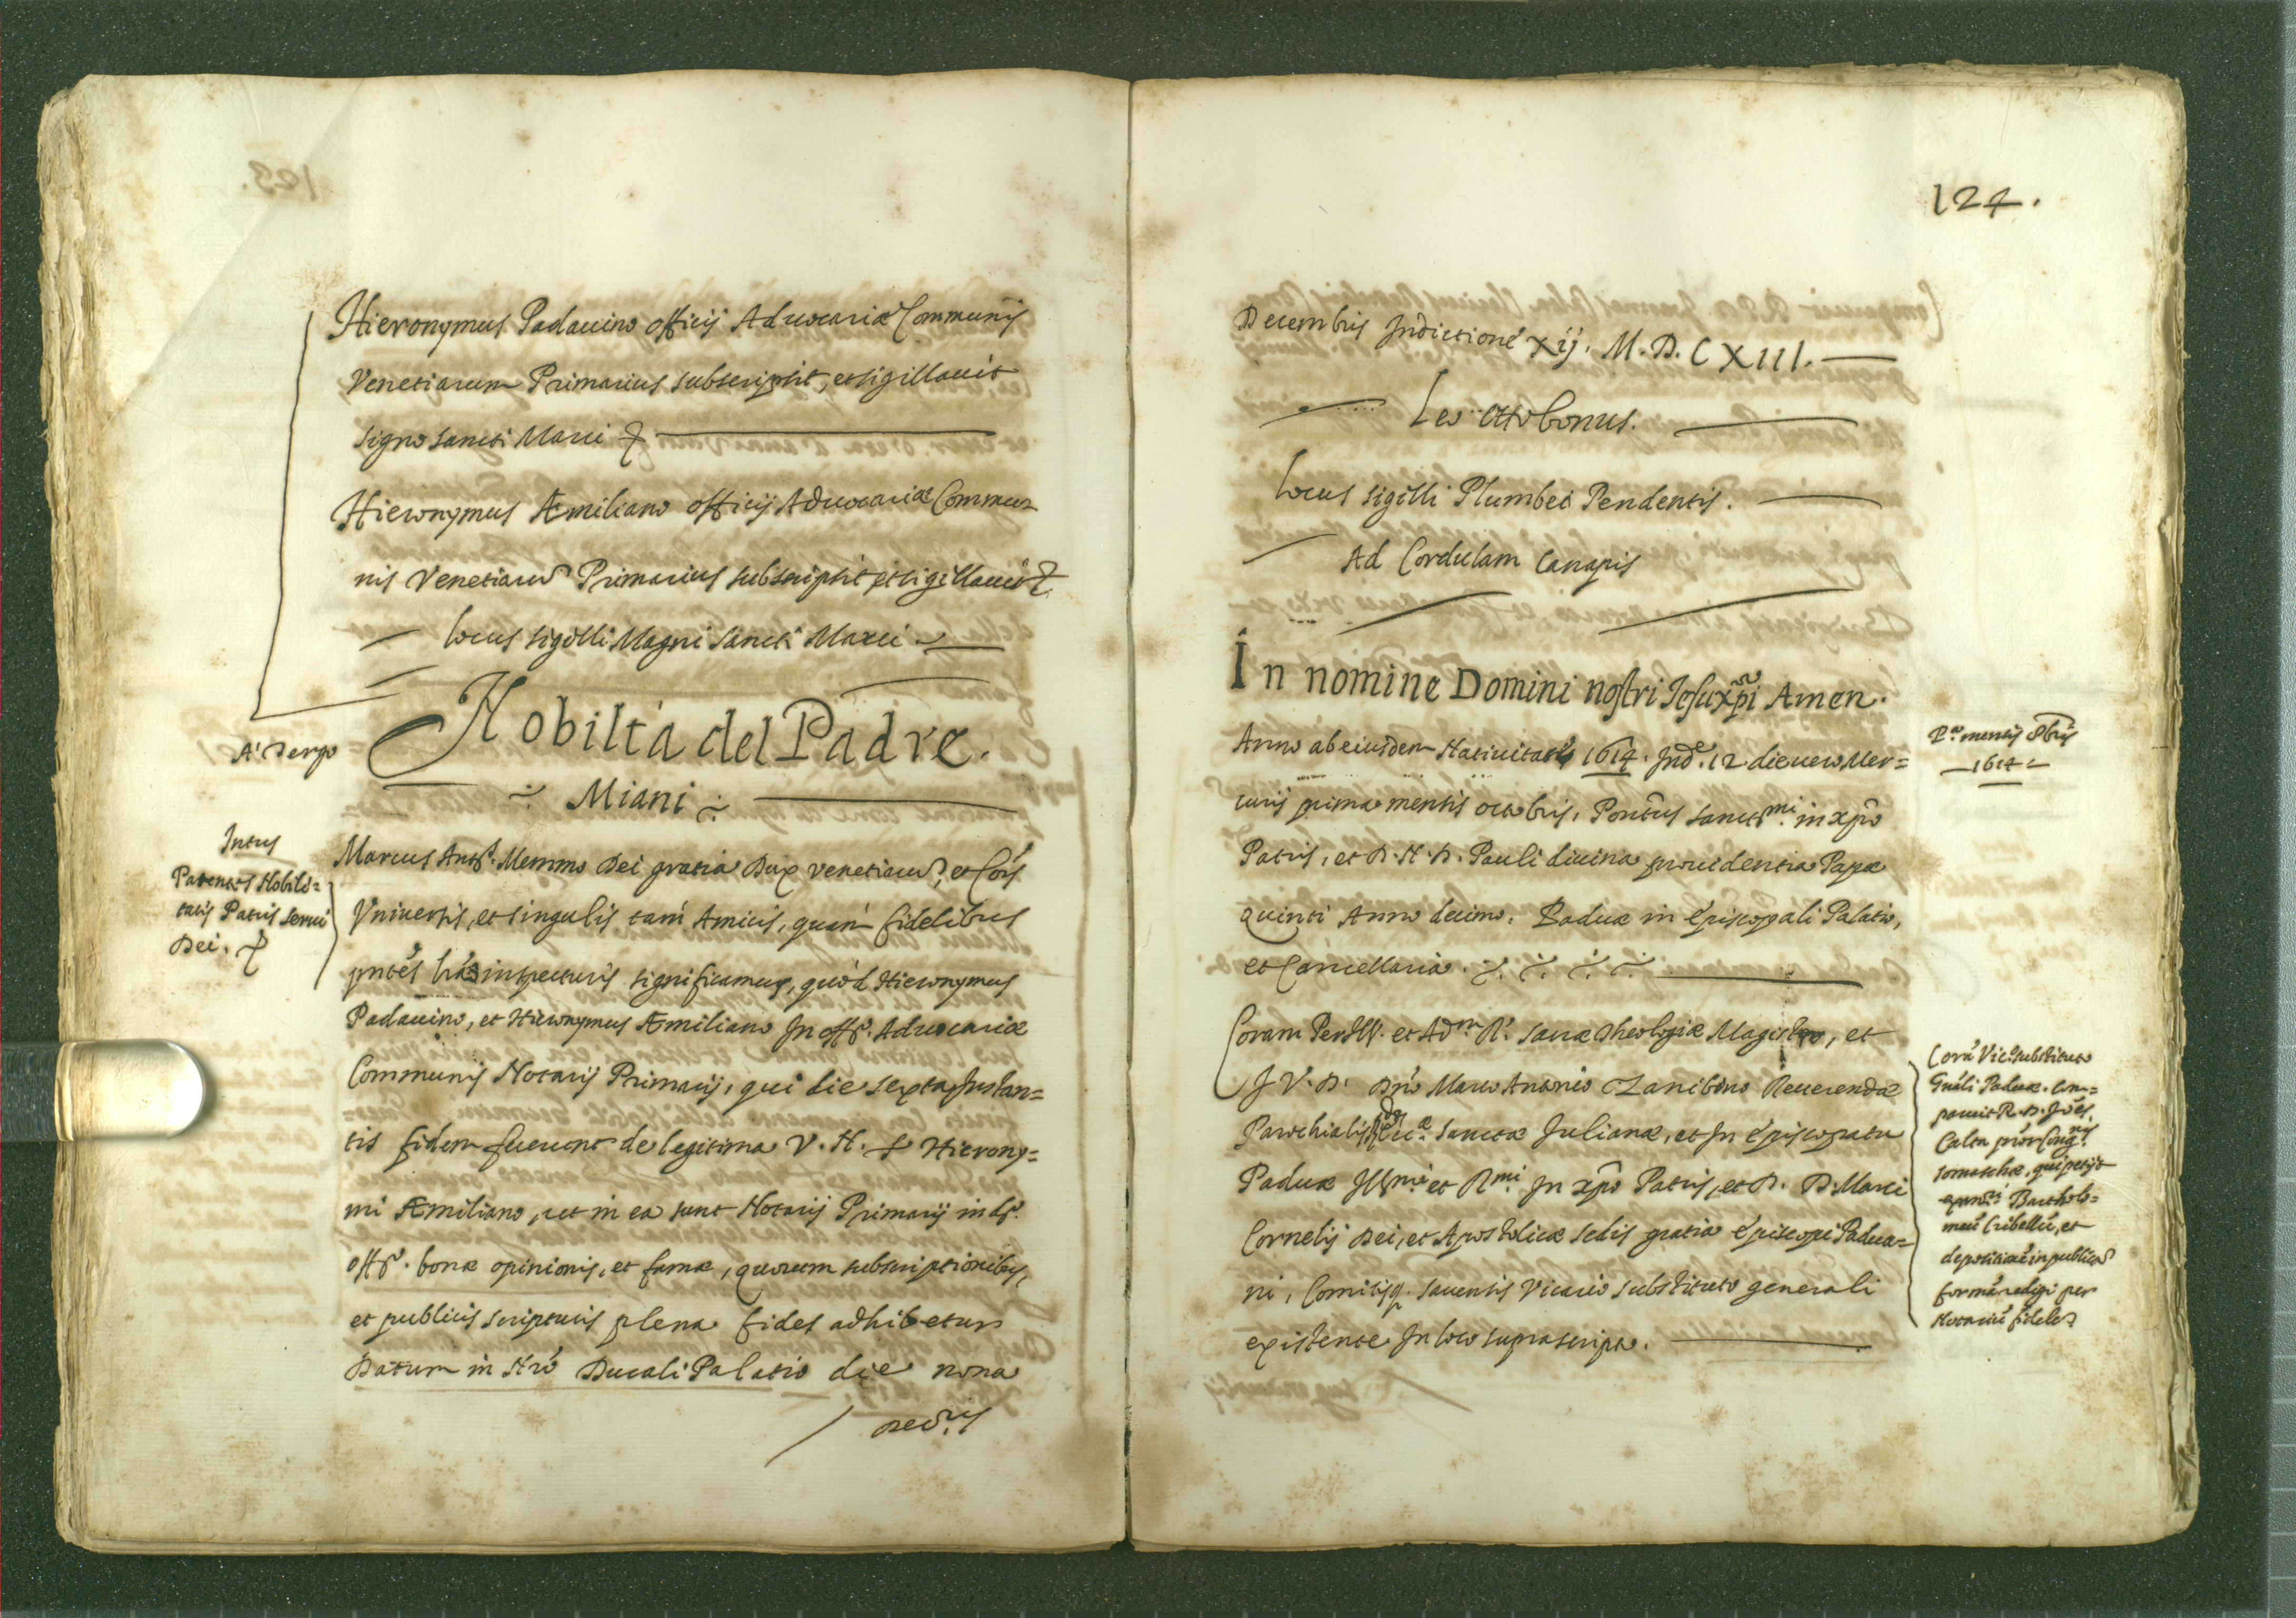 Hieronymus Padauino officij Aduocariæ Communis
Venetiarum Primarius subscripsit, et sigillauit
signo sancti Marci
Hieronymus Æmiliano officij Aduocariæ Commu-
nis Venetiarũ Primarius subscripsit et sigillauit
locus sigilli Magni sancti Marci
A' Tergo
Nobiltà del Padre.
Miani
Intus
Patentes Nobili=
tatis Patris serui
Dei.
Marcus Ant.s Memmo Dei gratia Dux venetiarũ, et Cõis
Vniuersis, et singulis tam Amicis, quam fidelibus
pntes lras inspecturis significamus, quod Hieronymus
Padauino, et Hieronymus Æmiliano In off.o Aduocariæ
Communis Notarij Primarij, qui die sexta Instan=
tis fidem fecerunt de legitima V. N. S. Hierony=
mi Æmiliano, ut in ea sunt Notarij Primarij in d.o
off.o bonæ opinionis, et famæ, quorum subscriptionibus,
et publicis scripturis plena fides adhibetur
Datum in Nrõ Ducali Palatio die nona
Decris
124.
Decembris Indictione Xij. M.D.CXIII.
Leo Ottobonus.
Locus sigilli Plumbei Pendentis.
Ad Cordulam Canapis
In nomine Domini nostri Iesu xpi Amen.
Anno ab eiusdem Natiuitate 1614. Ind.e 12 die uero Mer=
curij prima mensis octobris, Pontũs sanct.mi in xpõ
Patris, et D. N. D. Pauli diuina prouidentia Papæ
quinti Anno decimo. Paduæ in Episcopali Palatio,
et Cancellaria.
P.a mensis 8bris
1614
Coram Per Ill. et Adm. R. sacræ Theologiæ Magistro, et
J. V. D. Dnõ Marco Antonio Zanibono Reuerendæ
Parochialis sanctæ Iulianæ, et In Episcopatu
Paduæ Ill.mi et R.mi In xpõ Patris, et D. D. Marci
Cornelij Dei, et Apostolicæ sedis gratia Episcopi Padua=
ni, Comitisq. sacensis Vicario substituto generali
existente In loco suprascripto.
Corã Vic. substituto
Gnãli Paduæ. com=
paruit R. D. Joẽs
Calta prõr Cong.nis
somaschæ, qui petijt
exam.ri Bartholo=
meũ Cribellũ, et
depositioẽ in publicã
formã redigi per
Notariũ fidelẽ